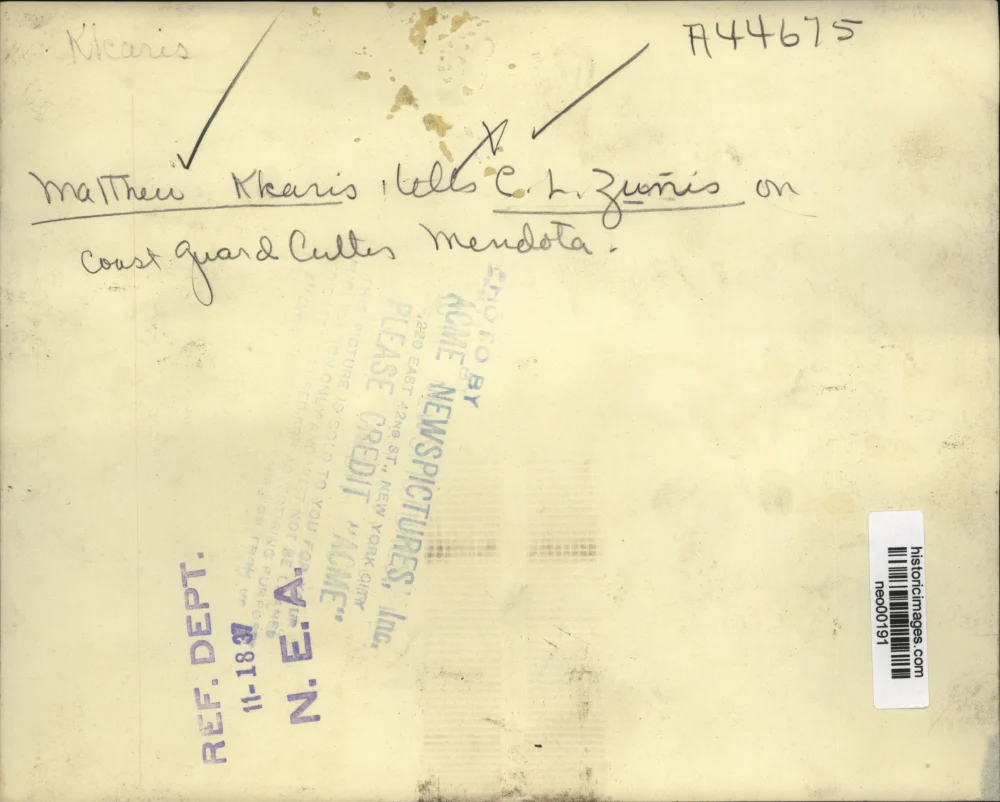 Kkaris
A44675
Matthew Kkaris tells C. L. Zuñis on
coast guard Cutter Mendota.
PHOTO BY
ACME NEWSPICTURES, Inc.
220 EAST 42ND ST., NEW YORK CITY
PLEASE CREDIT "ACME"
THIS PICTURE IS SOLD TO YOU FOR
ONLY AND NOT BE
REF. DEPT.
11-18 37
N. E. A.
historicimages.com
neo00191